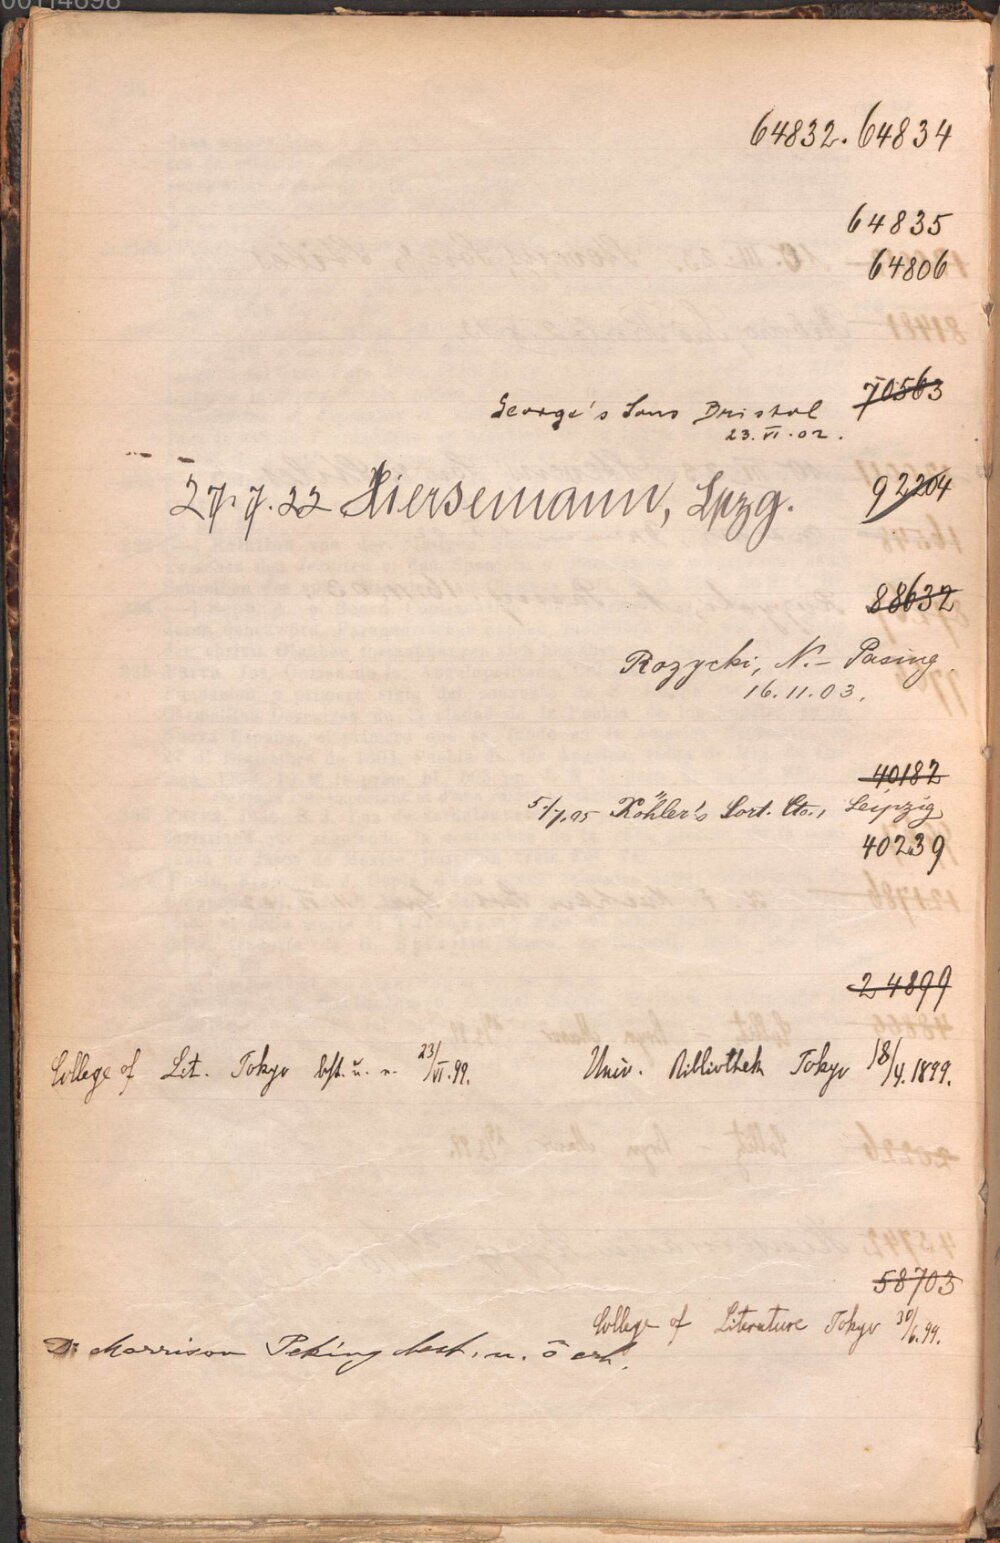 64832. 64834
64835
64806
70563
George's Sons Bristol
23. VI. 02.
27. 7. 22 Hiersemann, Lpzg.
92204
88632
Rozycki, N. - Pasing.
16. 11. 03.
40182
5/7. 95 Köhler's Sort. Cto., Leipzig
40239
24899
College of Lit. Tokyo 23/VI. 99.
Univ. Bibliothek Tokyo 18/4. 1899.
58703
College of Literature Tokyo 30/6. 99.
Dr Morrison Peking best. u. erh.